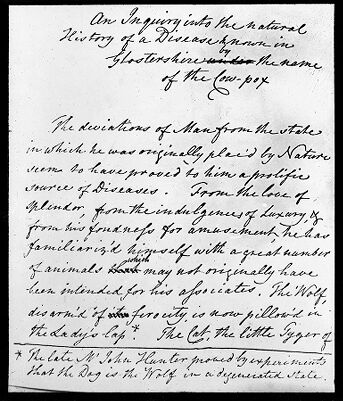 An Inquiry into the natural
History of a Disease known in
by
Glostershire under the name
of the Cow-pox
The deviations of Man from the state
in which he was originally plac'd by Nature
seem to have proved to him a prolific
source of Diseases. From the love of
splendor, from the indulgences of Luxury, &
from his fondness for amusement, he has
familiariz'd himself with a great number
which
of animals may not originally have
been intended for his associates. The Wolf,
disarm'd of ferocity, is now pillow'd in
the Lady's lap*. The Cat, the little Tyger of
* The late Mr. John Hunter proved by experiments
that the Dog is the Wolf in a degenerated state.